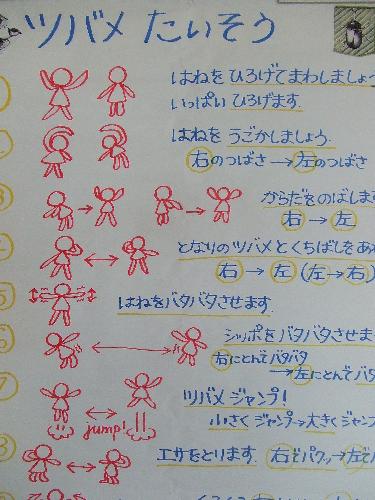 ツバメ たいそう
はねを ひろげてまわしましょう
いっぱい ひろげます.
はねを うごかしましょう.
右のつばさ→左のつばさ
3
からだをのばします
右 → 左
となりのツバメとくちばしをあ
右 → 左 (左→右)
5
はねをバタバタさせます.
6
シッポをバタバタさせま
右にとんでバタバタ
→左にとんでバタ
7
ツバメ ジャンプ!
小さくジャンプ→大きくジャン
jump!
エサをとります. 右でパクッ→左で